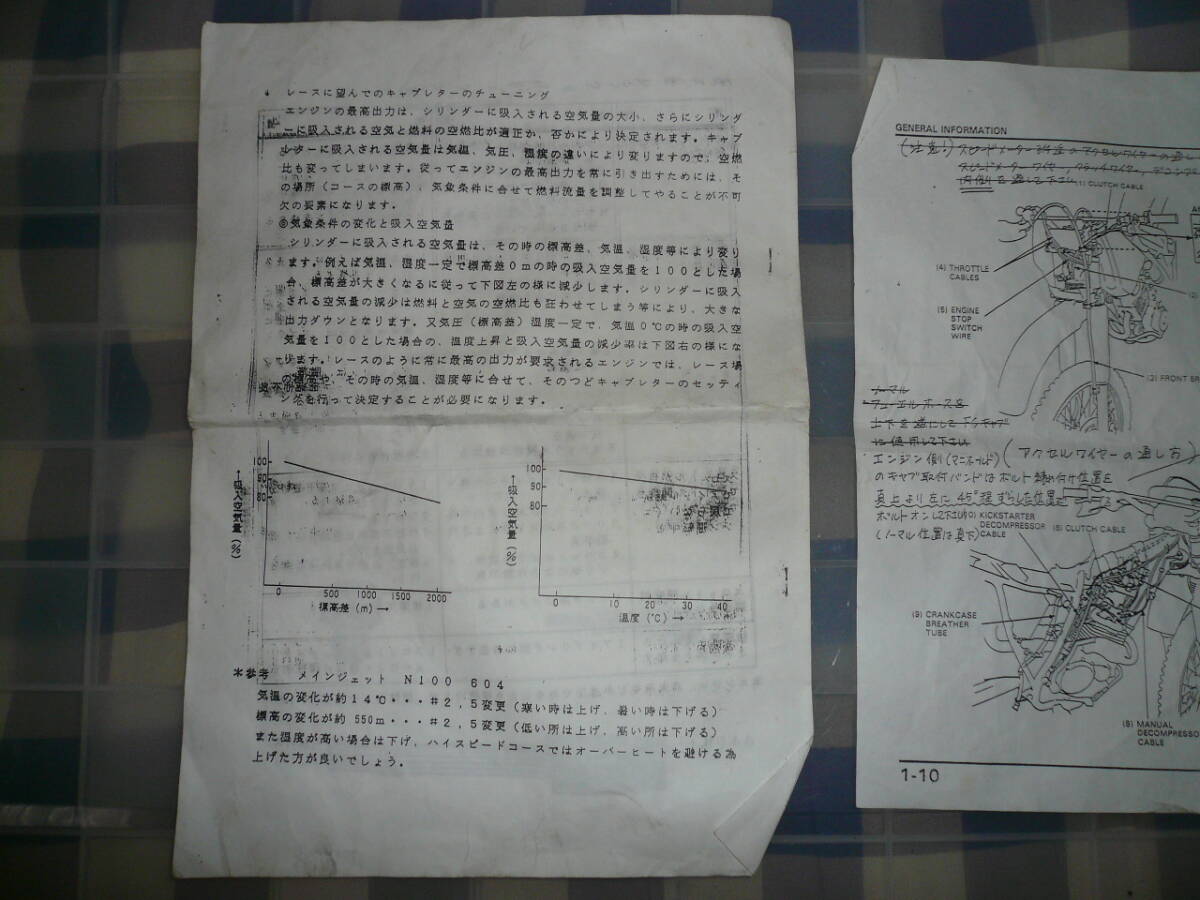 4 レースに望んでのキャブレターのチューニング
エンジンの最高出力は、シリンダーに吸入される空気量の大小、さらにシリンダ
ーに吸入される空気と燃料の空燃比が適正か、否かにより決定されます。キャブ
レターに吸入される空気量は気温、気圧、湿度の違いにより変りますので、空燃
比も変ってしまいます。従ってエンジンの最高出力を常に引き出すためには、そ
の場所（コースの標高）、気象条件に合せて燃料流量を調整してやることが不可
欠の要素になります。
◎気象条件の変化と吸入空気量
シリンダーに吸入される空気量は、その時の標高差、気温、湿度等により変り
ます。例えば気温、湿度一定で標高差0mの時の吸入空気量を100とした場
合、標高差が大きくなるに従って下図左の様に減少します。シリンダーに吸入
される空気量の減少は燃料と空気の空燃比も狂わせてしまう等により、大きな
出力ダウンとなります。又気圧（標高差）湿度一定で、気温0℃の時の吸入空
気量を100とした場合の、温度上昇と吸入空気量の減少率は下図右の様にな
ります。レースのように常に最高の出力が要求されるエンジンでは、レース場
の標高や、その時の気温、湿度等に合せて、そのつどキャブレターのセッティ
ングを行って決定することが必要になります。
100
90
80
↑吸入空気量（%）
0 500 1000 1500 2000
標高差（m）→
100
90
80
↑吸入空気量（%）
0 10 20 30 40
温度（℃）→
＊参考 メインジェット N100 604
気温の変化が約14℃・・・#2,5変更（寒い時は上げ、暑い時は下げる）
標高の変化が約550m・・・#2,5変更（低い所は上げ、高い所は下げる）
また湿度が高い場合は下げ、ハイスピードコースではオーバーヒートを避ける為
上げた方が良いでしょう。
GENERAL INFORMATION
(1) CLUTCH CABLE
(4) THROTTLE
CABLES
(5) ENGINE
STOP
SWITCH
WIRE
(3) FRONT BR
ノーマル
フューエルホースを
上下を逆にして下さい
(アクセルワイヤーの通し方)
エンジン側(マニホールド)
のキャブ取付バンドはボルト締め付け位置を
真上より左に45°程ずらした位置で
ボルトオンして下さい
(ノーマル位置は真下)
KICKSTARTER
DECOMPRESSOR
CABLE
(6) CLUTCH CABLE
(9) CRANKCASE
BREATHER
TUBE
(8) MANUAL
DECOMPRESSO
CABLE
1-10